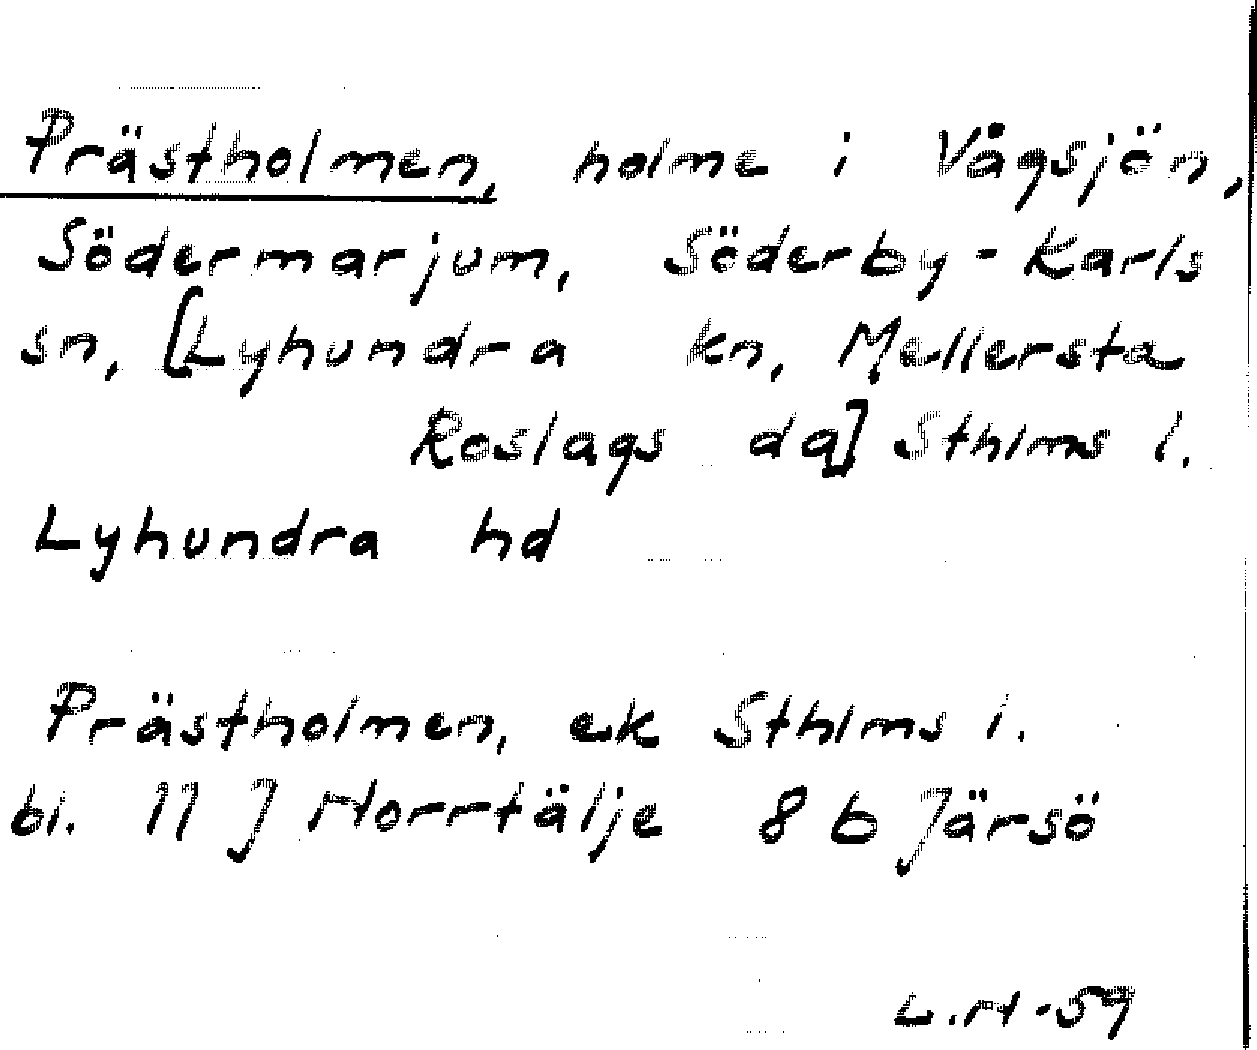 Prästholmen, holme i Vågsjön,
Södermarjum, Söderby-Karls
sn, [Lyhundra kn, Mellersta
Roslags dq] Sthlms l.
Lyhundra hd
Prästholmen, ek Sthlms l.
bl. 11 J Norrtälje 8 b Järsö
L.H-59